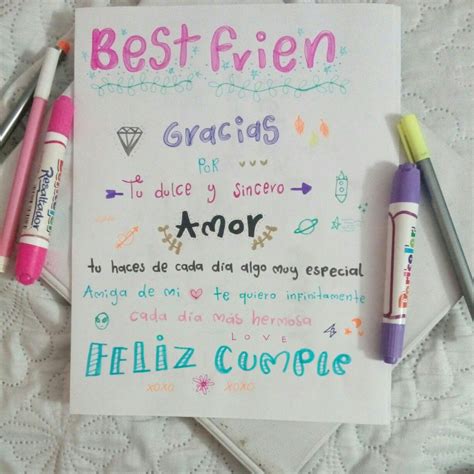 Best frien
Gracias
POR
Tu dulce y sincero
Amor
tu haces de cada día algo muy especial
Amiga de mi te quiero infinitamente
cada día más hermosa
LOVE
FELIZ CUMPLE
XOXO XOXO
Resaltador